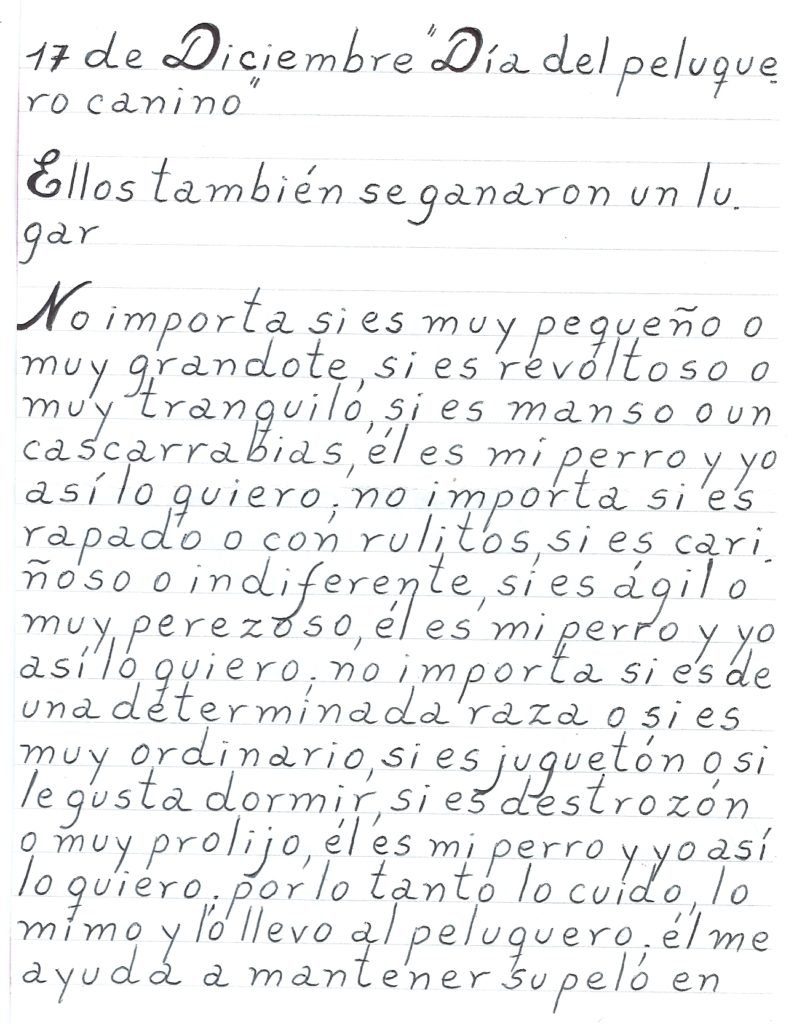 17 de Diciembre "Día del peluque
ro canino"
Ellos también se ganaron un lu.
gar
No importa si es muy pequeño o
muy grandote, si es revoltoso o
muy tranquilo, si es manso o un
cascarrabias, él es mi perro y yo
así lo quiero; no importa si es
rapado o con rulitos, si es cari.
ñoso o indiferente, si es ágil o
muy perezoso, él es mi perro y yo
así lo quiero; no importa si es de
una determinada raza o si es
muy ordinario, si es juguetón o si
le gusta dormir, si es destrozón
o muy prolijo, él es mi perro y yo así
lo quiero; por lo tanto lo cuido, lo
mimo y lo llevo al peluquero; él me
ayuda a mantener su pelo en